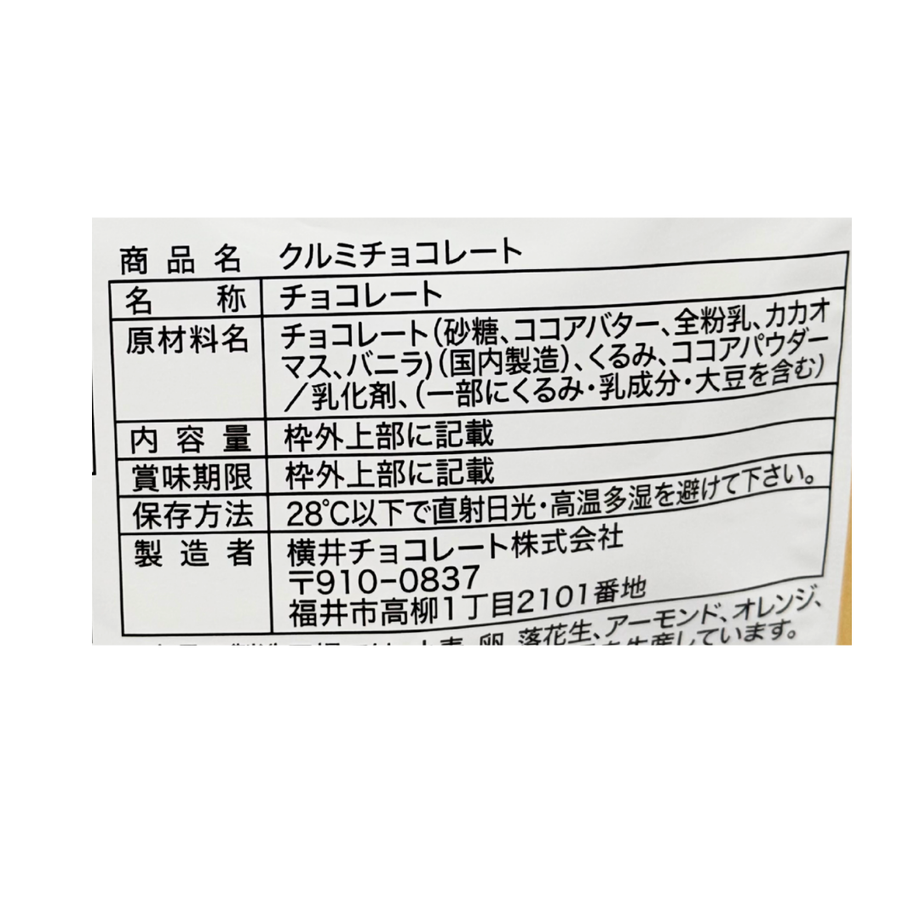 商品名 クルミチョコレート
名称 チョコレート
原材料名 チョコレート(砂糖、ココアバター、全粉乳、カカオ
マス、バニラ)(国内製造)、くるみ、ココアパウダー
／乳化剤、(一部にくるみ・乳成分・大豆を含む)
内容量 枠外上部に記載
賞味期限 枠外上部に記載
保存方法 28℃以下で直射日光・高温多湿を避けて下さい。
製造者 横井チョコレート株式会社
〒910-0837
福井市高柳1丁目2101番地
卵、落花生、アーモンド、オレンジ、
を生産しています。